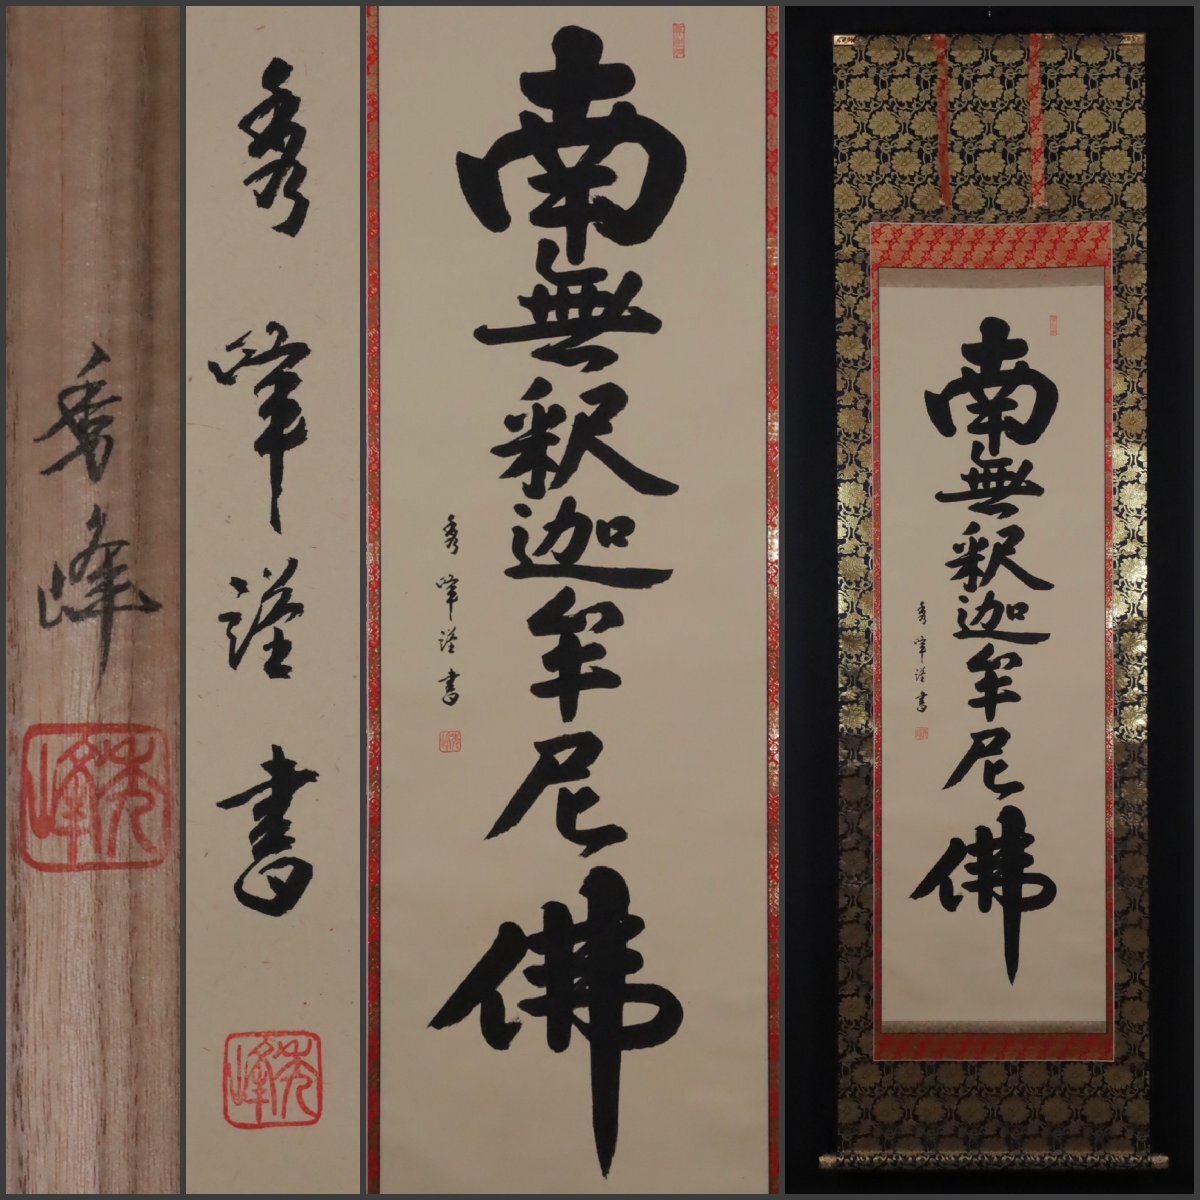 秀峰
秀峰
秀峰謹書
秀峰
南無釈迦牟尼佛
秀峰謹書
秀峰
南無釈迦牟尼佛
秀峰謹書